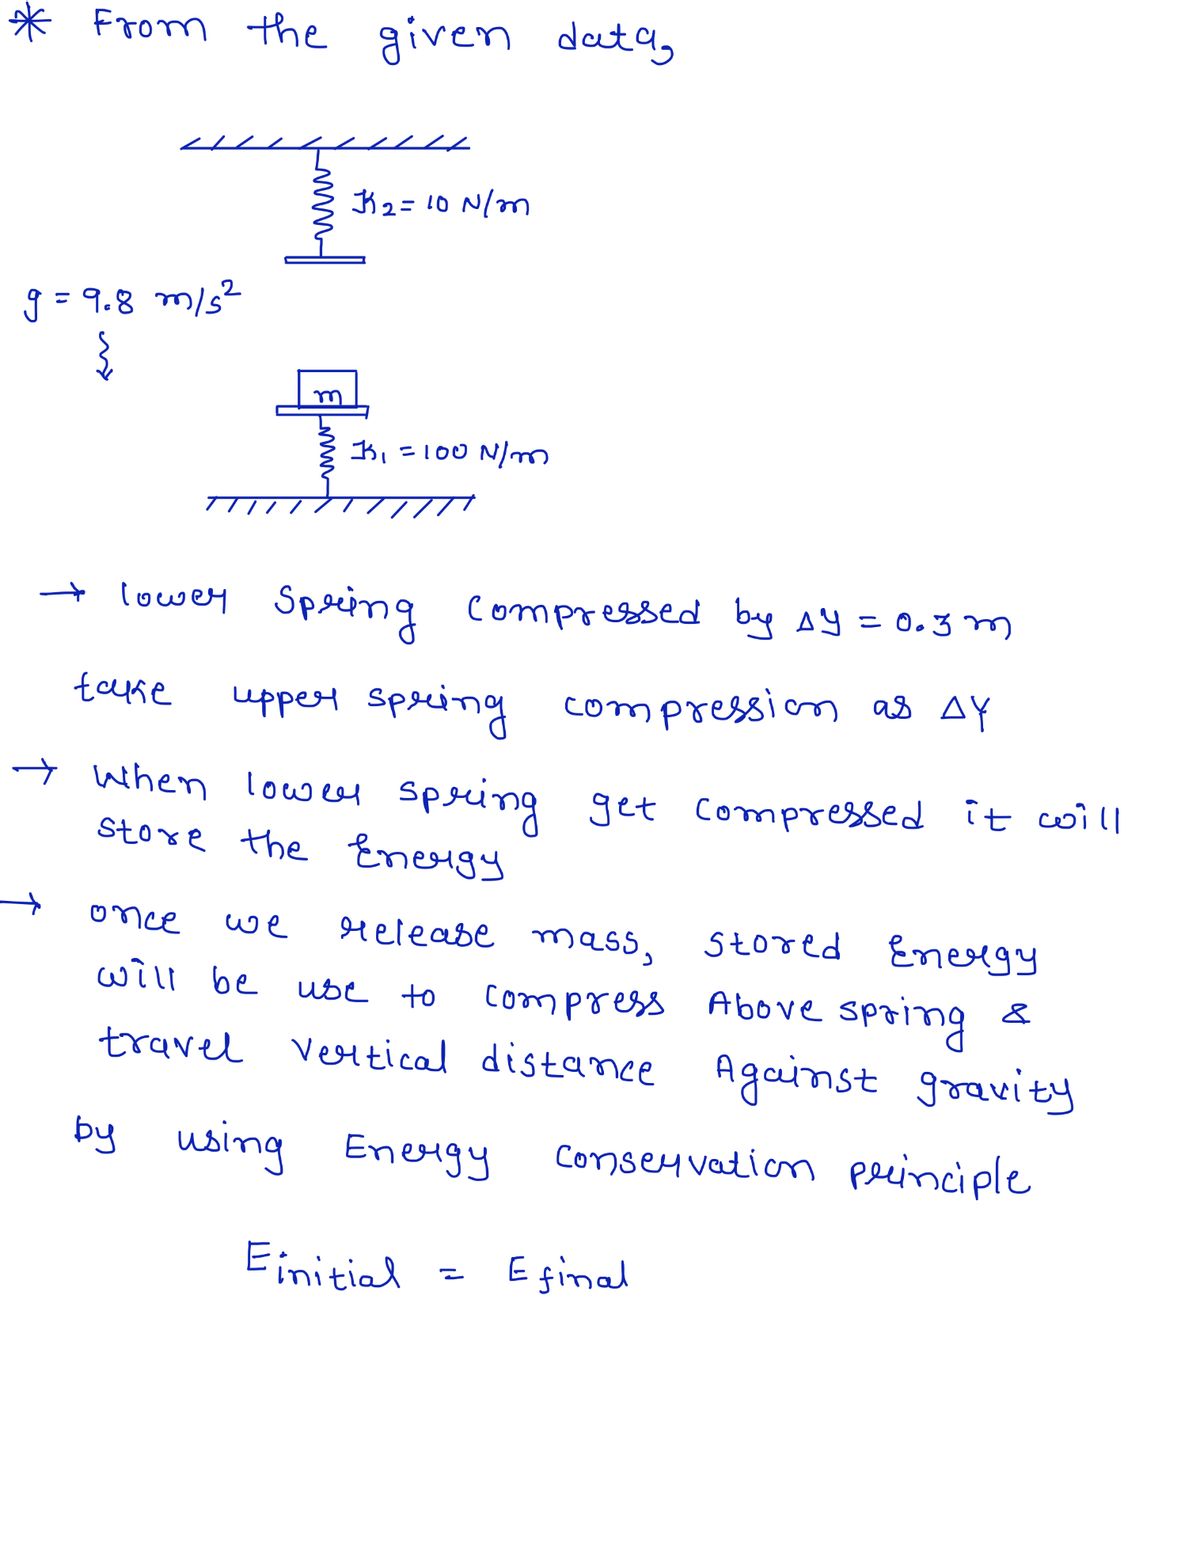 * From the given data,
K2 = 10 N/m
g = 9.8 m/s2
m
K1 = 100 N/m
→ lower Spring compressed by Δy = 0.3 m
take upper spring compression as ΔY
→ When lower spring get compressed it will
store the Energy
→ once we release mass, stored Energy
will be use to compress Above spring &
travel vertical distance Against gravity
by using Energy conservation principle
Einitial = Efinal